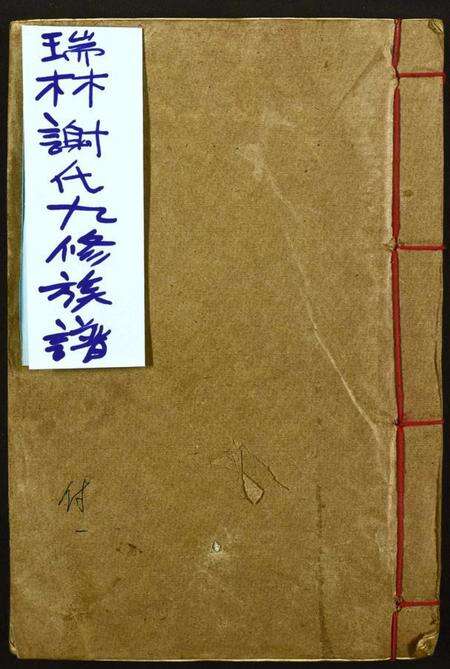 瑞林謝氏九修族譜
付一